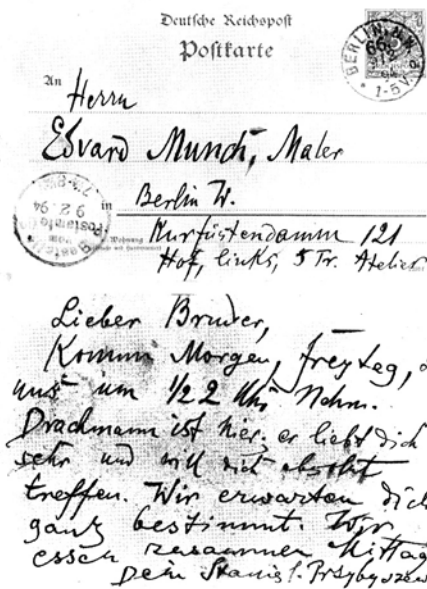 Deutsche Reichspost
Postkarte
An
Herrn
Edvard Munch, Maler
in
Berlin W.
Wohnung
Kurfüstendamm 121
Hof, links, 5 Tr. Atelier
BERLIN
66
1-5V.
9.2.94
Lieber Bruder,
Komm Morgen, Freytag,
um 1/2 2 Uhr Nchm.
Drachmann ist hier, er liebt dich
sehr und will dich absolut
treffen. Wir erwarten dich
ganz bestimmt. Wir
essen zusammen Mittag
Dein Stanisl. Przybyszew